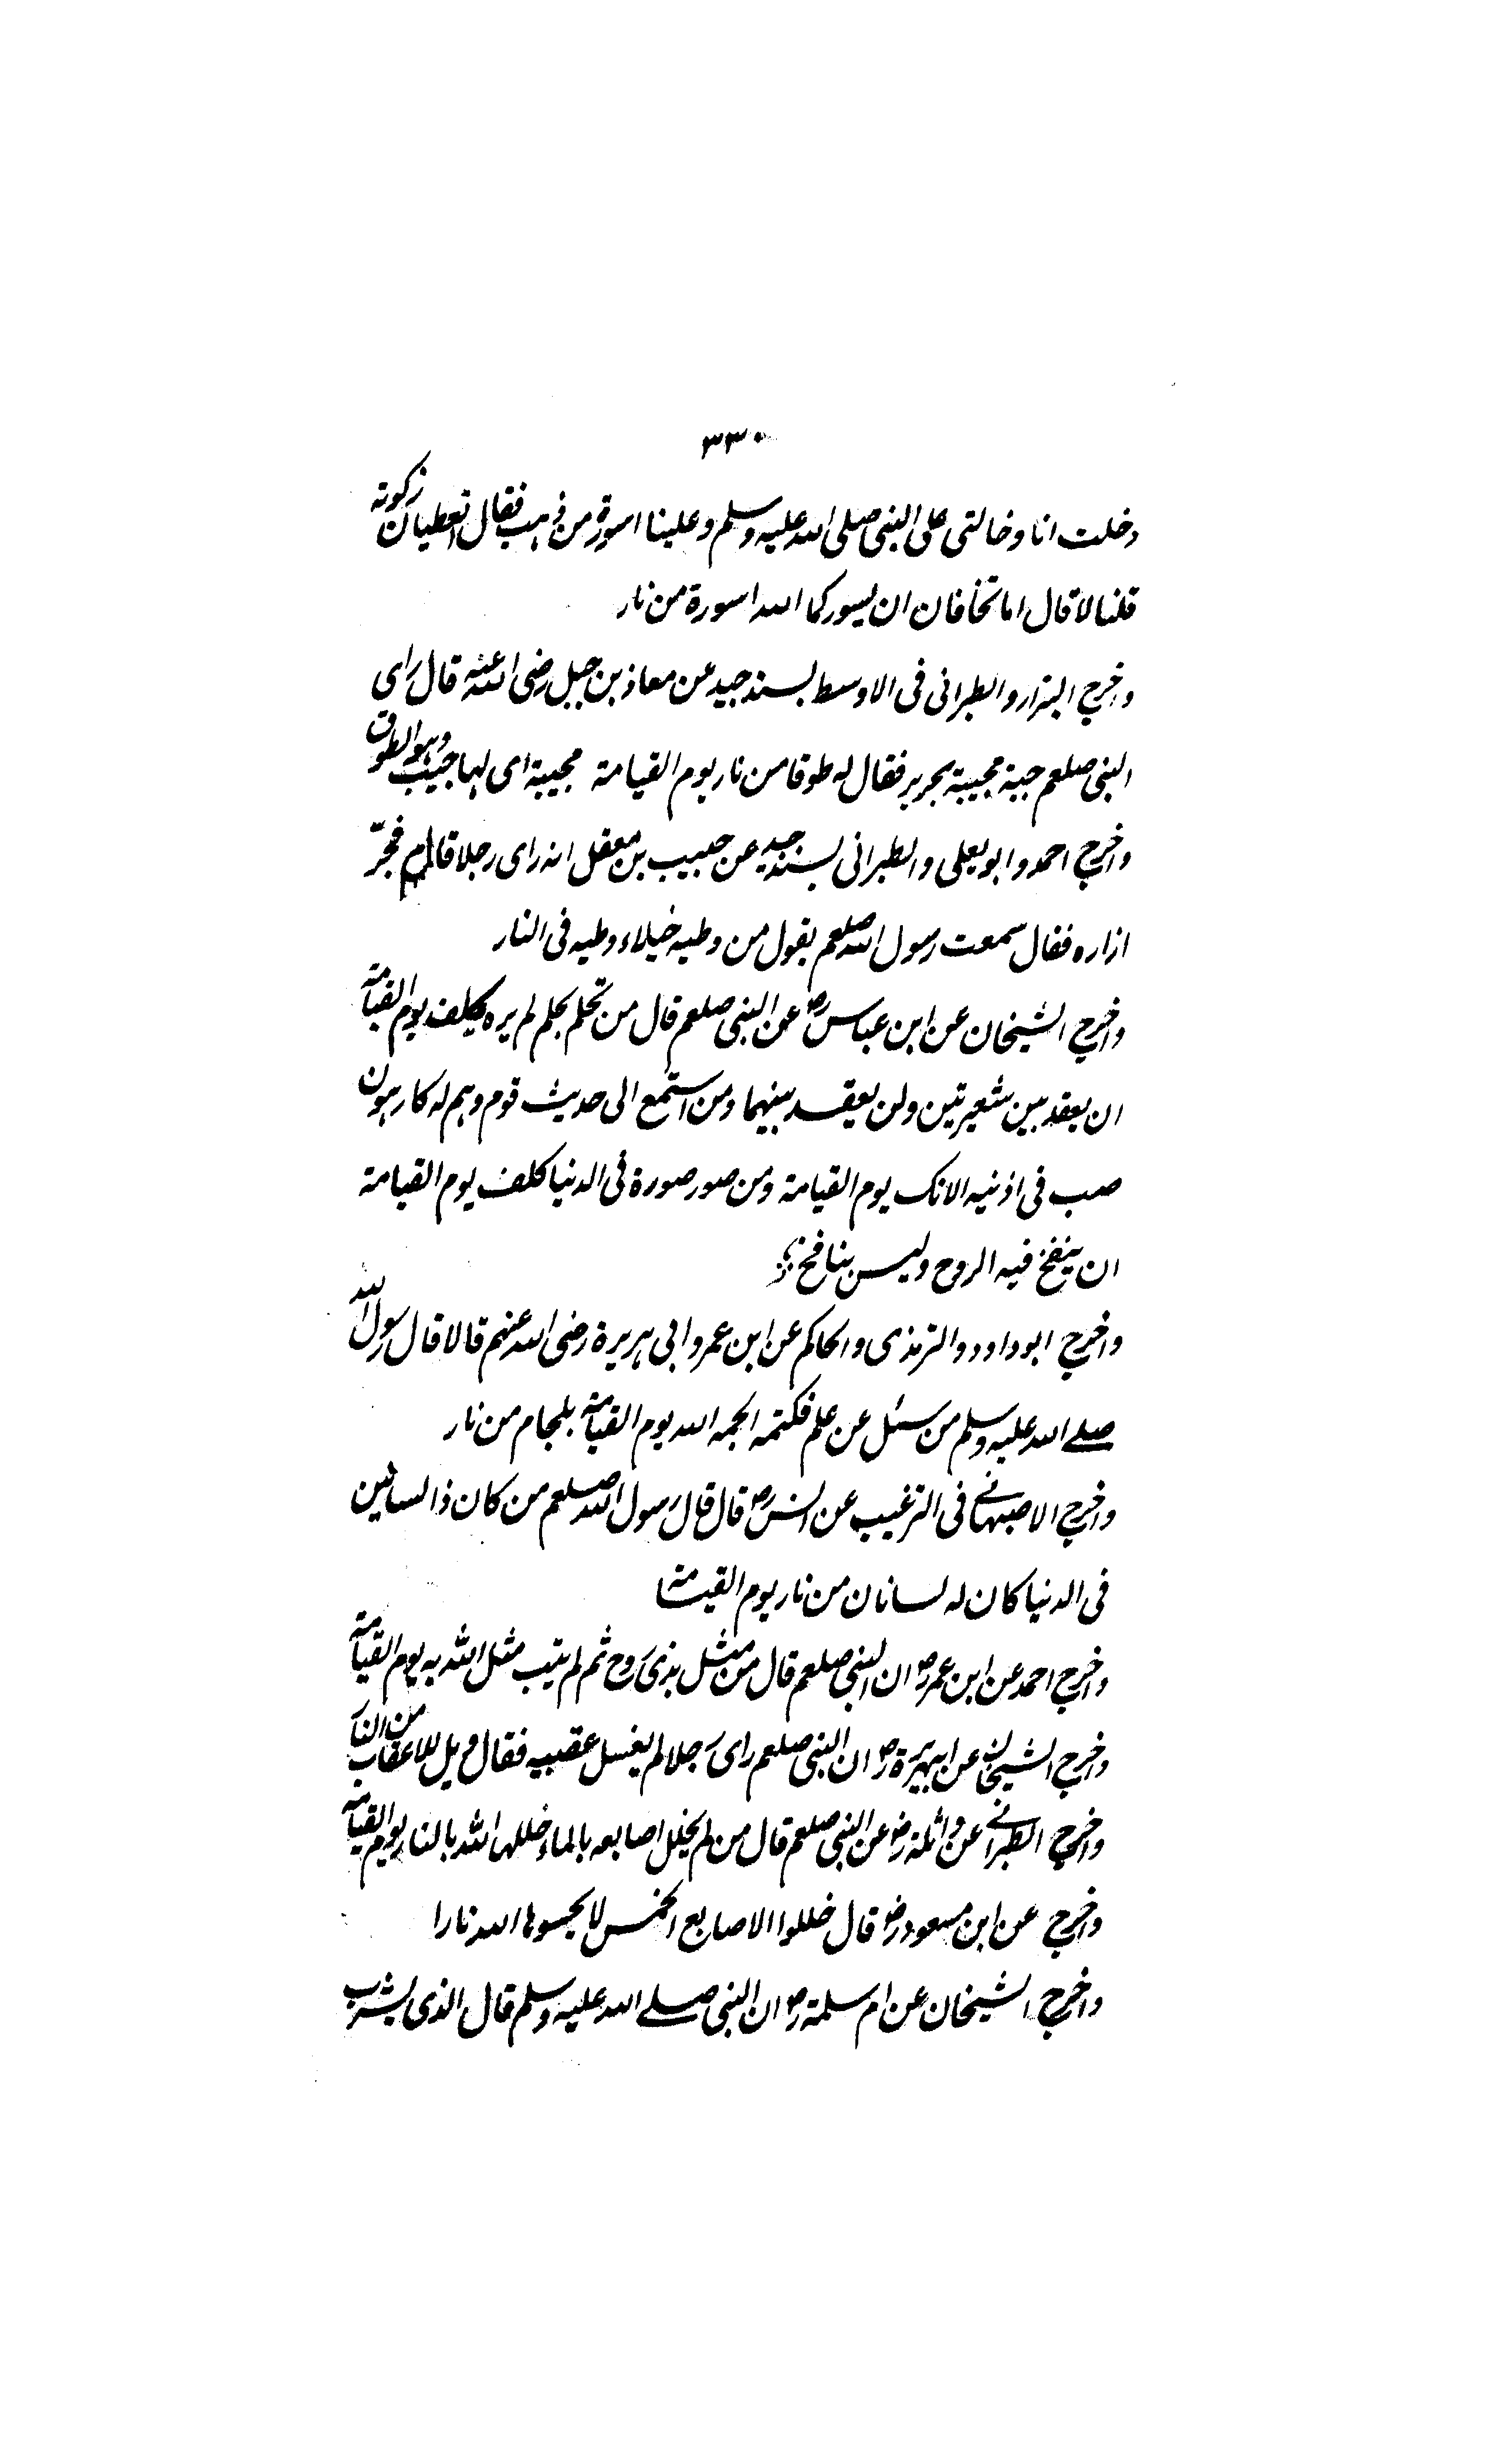 ٣٣٠
دخلت انا وخالتی علی النبی صلی الله علیه وسلم وعلینا اسورة من ذهب فقال اتعطیان زکوته
قلنا لا قال اما تخافان ان یسورکما الله اسورة من نار
واخرج البزار والطبرانی فی الاوسط بسند جید عن معاذ بن جبل رضی الله عنه قال رای
النبی صلعم جبة مجیبة بحریر فقال له طوقا من نار یوم القیامة مجیبة ای لها جیب وهو الطوق
واخرج احمد وابو یعلی والطبرانی بسند جید عن حبیب بن مغفل انه رای رجلا قائم فجرّ
ازاره فقال سمعت رسول الله صلعم یقول من وطیه خیلاء وطیه فی النار
واخرج الشیخان عن ابن عباس رض عن النبی صلعم قال من تحلم بحلم لم یره یکلف یوم القیامة
ان یعقد بین شعیرتین ولن یعقد بینهما ومن استمع الی حدیث قوم وهم له کارهون
صب فی اذنیه الانک یوم القیامة ومن صور صورة فی الدنیا کلف یوم القیامة
ان ینفخ فیه الروح ولیس بنافخ
واخرج ابو داود والترمذی والحاکم عن ابن عمر وابی هریرة رضی الله عنهم قالا قال رسول الله
صلے الله علیه وسلم من سئل عن علم فکتمه الجمه الله یوم القیامة بلجام من نار
واخرج الاصبهانے فی الترغیب عن انس رض قال قال رسول الله صلعم من کان ذا لسانین
فی الدنیا کان له لسانان من نار یوم القیمة
واخرج احمد عن ابن عمر رض ان النبی صلعم قال من مثل بذی روح ثم لم یتب مثل الله به یوم القیامة
واخرج الشیخان عن ابیهریرة رض ان النبی صلعم رای رجلا لم یغسل عقبیه فقال ویل للاعقاب من النار
واخرج الطبرانے عن واثلة رض عن النبی صلعم قال من لم یخلل اصابعه بالماء خللها الله بالنار یوم القیامة
واخرج عن ابن مسعود رض قال خللوا الاصابع الخمس لا یحسوها الله نارا
واخرج الشیخان عن ام سلمة رض ان النبی صلے الله علیه وسلم قال الذی یشرب